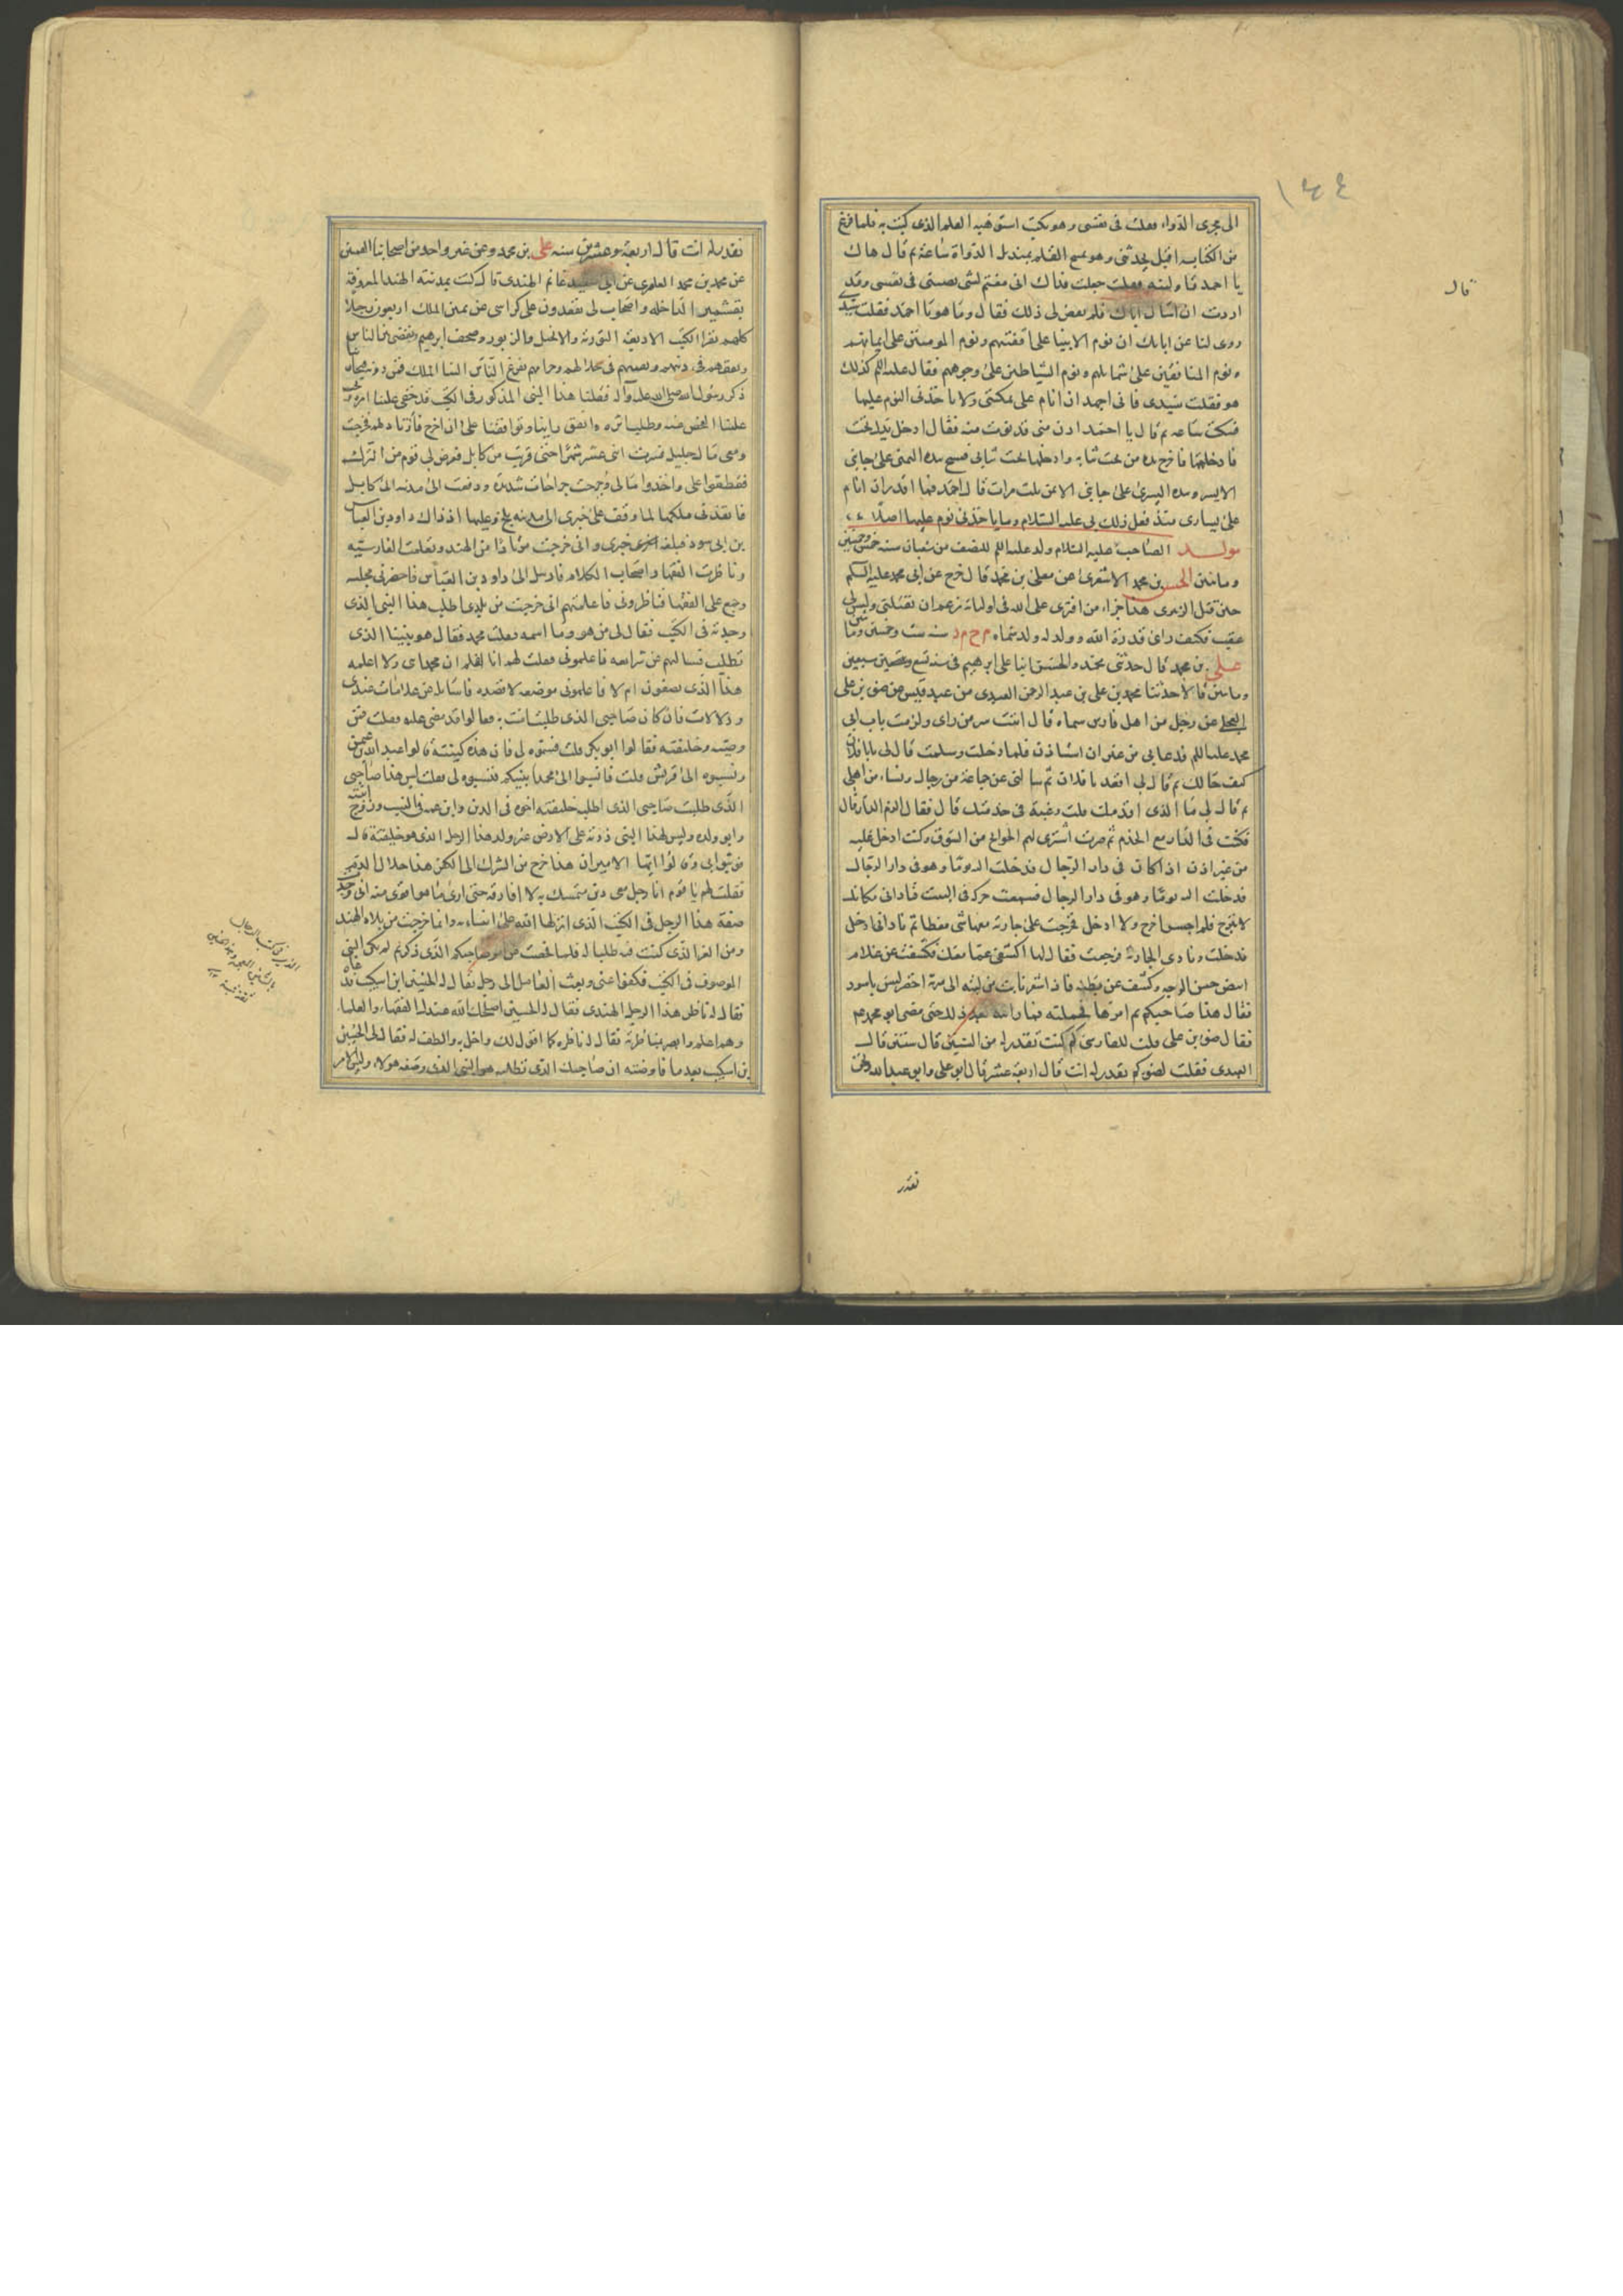 ١٤٤
الى مجرى الدواة فقلت فى نفسى وهو يكتب استوهبه القلم الذى كتب به فلما فرغ
من الكتابه اقبل يحدثنى وهو يمسح القلم بمنديل الدواة ساعة ثم قال هاك
يا احمد فناولنيه فقلت جعلت فداك انى مغتم لشى يصيبنى فى نفسى وقد
اردت ان اسال اباك فلم يقض لى ذلك فقال وما هو يا احمد فقلت سيدى
روى لنا عن ابايك ان نوم الانبيا على اقفيتهم ونوم المومنين على ايمانهم
ونوم المنافقين على شمايلهم ونوم الشياطين على وجوههم فقال عليه السلم كذلك
هو فقلت سيدى فانى اجهد ان انام على يمينى ولا ياخذنى النوم عليها
فسكت ساعه ثم قال يا احمد ادن منى فدنوت منه فقال ادخل يدك تحت
فادخلتها فاخرج يده من تحت ثيابه وادخلها تحت ثيابى فمسح بيده اليمنى على جانبى
الايسر وبيده اليسرى على جانبى الايمن ثلث مرات قال احمد فما اقدر ان انام
على يسارى منذ فعل ذلك بى عليه السلام وما ياخذنى نوم عليها اصلا
مولد الصاحب عليه السلام ولد عليه السلم للنصف من شعبان سنه خمس وخمسين
وماتين الحسين بن محمد الاشعرى عن معلى بن محمد قال خرج عن ابى محمد عليه السلم
حين قتل الزبيرى هذا جزاء من افترى على الله فى اوليائه زعم ان يقتلنى وليس لى
عقب فكيف راى قدرة الله وولد له ولد سماه م ح م د سنه ست وخمسين وماتين
على بن محمد قال حدثنى محمد والحسن ابنا على ابن ابرهيم فى سنه تسع وسبعين
وماتين قالا حدثنا محمد بن على بن عبد الرحمن العبدى من عبد قيس عن ضوء بن على
العجلى عن رجل من اهل فارس سماه قال اتيت سر من راى ولزمت باب ابى
محمد عليه السلم فدعانى من غير ان استاذن فلما دخلت وسلمت قال لى يابا فلان
كيف حالك ثم قال لى اقعد يا فلان ثم سالنى عن جماعة من رجال ونساء من اهلى
ثم قال لى ما الذى اقدمك قلت رغبة فى خدمتك قال فقال الزم الدار قال
فكنت فى الدار مع الخدم ثم صرت اشترى لهم الحوائج من السوق وكنت ادخل عليه
من غير اذن اذا كان فى دار الرجال فدخلت اليه يوما وهو فى دار الرجال
فدخلت اليه يوما وهو فى دار الرجال فسمعت حركه فى البيت فنادانى مكانك
لا تبرح فلم اجسر اخرج ولا ادخل فخرجت على جارية معها شى مغطا ثم نادانى ادخل
فدخلت ونادى الجارية فرجعت فقال لها اكشفى عما معك فكشفت عن غلام
ابيض حسن الوجه وكشف عن بطنه فاذا اشعر نابت من لبته الى سرته اخضر ليس باسود
فقال هذا صاحبكم ثم امرها فحملته فما رايته بعد ذلك حتى مضى ابو محمد عم
فقال ضوء بن على قلت للفارسى كم كنت تقدر له من السنين قال سنتين قال
العبدى فقلت لضوء كم تقدر له انت قال اربع عشر قال ابو على وابو عبد الله ونحن
قال
تقدر
نقدر له انت قال اربعة وعشرين سنه على بن محمد وعن غير واحد من اصحابنا القميين
عن محمد بن محمد العامرى عن ابى سعيد غانم الهندى قال كنت بمدينه الهند المعروفة
بقشمير الداخله واصحاب لى يقعدون على كراسى عن يمين الملك اربعون رجلا
كلهم يقرا الكتب الاربعة التورية والانجيل والزبور وصحف ابرهيم ونقضى بين الناس
ونفقههم فى دينهم ونفتيهم فى حلالهم وحرامهم يفزع الناس الينا الملك فمن دونه فتجارينا
ذكر رسول الله صلى الله عليه وآله فقلنا هذا النبى المذكور فى الكتب قد خفى علينا امره ويجب
علينا الفحص عنه وطلب اثره واتفق راينا وتوافقنا على ان اخرج فارتاد لهم فخرجت
ومعى مال جليل فسرت اثنى عشر شهرا حتى قربت من كابل فعرض لى قوم من الترك
فقطعوا على واخذوا مالى وجرحت جراحات شديدة ودفعت الى مدينه الى كابل
فانفذنى ملكها لما وقف على خبرى الى مدينه بلخ وعليها اذ ذاك داود بن العباس
بن ابى سود فبلغه خبرى وانى خرجت مرتادا من الهند وتعلمت الفارسيه
وناظرت الفقها واصحاب الكلام فارسل الى داود بن العباس فاحضرنى مجلسه
وجمع على الفقها فناظرونى فاعلمتهم انى خرجت من بلدى اطلب هذا النبى الذى
وجدته فى الكتب فقال لى من هو وما اسمه فقلت محمد فقال هو نبينا الذى
تطلب فسالتهم عن شرايعه فاعلمونى فقلت لهم انا اعلم ان محمدا نبى ولا اعلمه
هذا الذى تصفون ام لا فاعلمونى موضعه لاقصده فاسايله عن علامات عندى
ودلالات فان كان صاحبى الذى طلبت امنت به فقالوا قد مضى عليه السلم فقلت فمن
وصيه وخليفته فقالوا ابو بكر قلت فسموه لى فان هذه كنيته قالوا عبد الله بن عثمن
ونسبوه الى قريش قلت فانسبوا الى محمدا نبيكم فنسبوه لى فقلت ليس هذا صاحبى
الذى طلبت صاحبى الذى اطلبه خليفته اخوه فى الدين وابن عمه فى النسب وزوج ابنته
وابو ولده وليس لهذا النبى ذرية على الارض غير ولد هذا الرجل الذى هو خليفته قال
فوثبوا بى وقالوا ايها الامير ان هذا خرج من الشرك الى الكفر هذا حلال الدم
فقلت لهم يا قوم انا رجل معى دين متمسك به لا افارقه حتى ارى ما هو اقوى منه انى وجدت
صفة هذا الرجل فى الكتب الذى انزلها الله على انبيائه وانما خرجت من بلاد الهند
ومن العز الذى كنت فيه طلبا له فلما فحصت عن امر صاحبكم الذى ذكرتم لم يكن النبى
الموصوف فى الكتب فكفوا عنى وبعث العامل الى رجل يقال له الحسين ابن اسكيب فدعاه
فقال له ناظر هذا الرجل الهندى فقال له الحسين اصلحك الله عندك الفقهاء والعلماء
وهم اعلم وابصر بمناظرته فقال له ناظره كما اقول لك واخل به والطف له فقال لى الحسين
بن اسكيب بعد ما فاوضته ان صاحبك الذى تطلبه هو النبى الذى وصفه هولاء وليس الامر